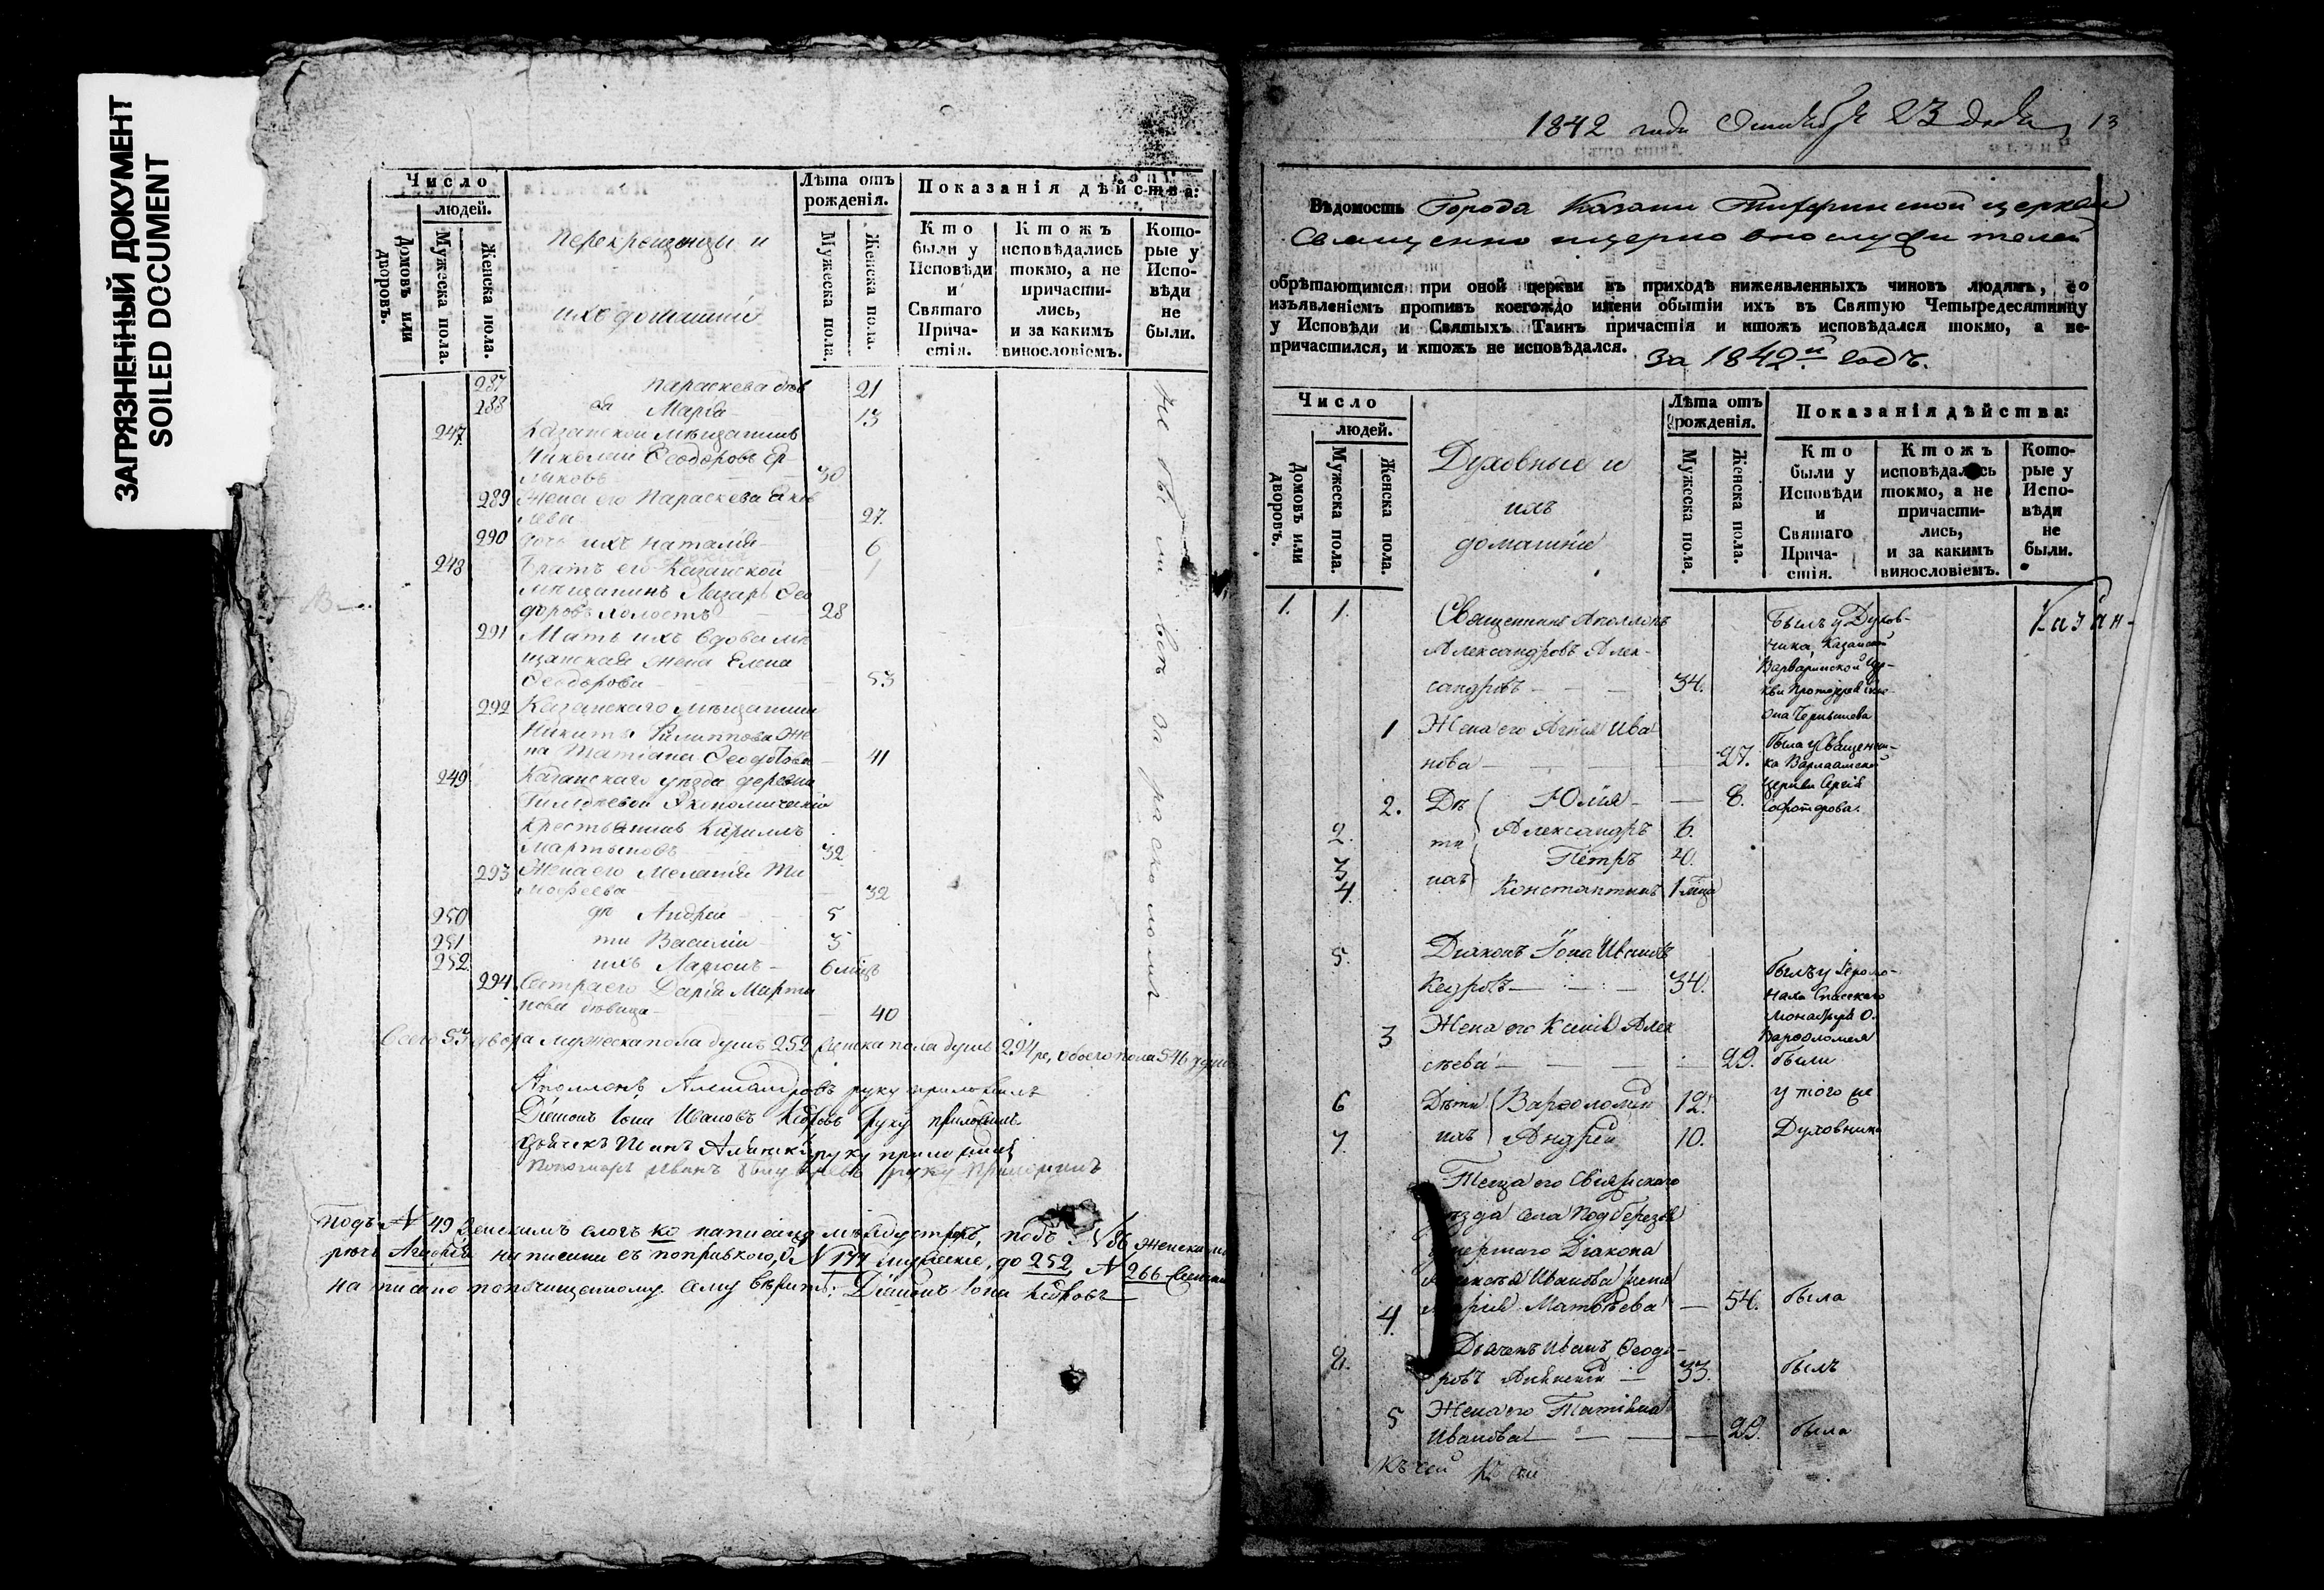 ЗАГРЯЗНЕННЫЙ ДОКУМЕНТ
SOILED DOCUMENT
Число
людей.
Домовъ или дворовъ.
Мужеска пола.
Женска пола.
Перекрещенцы и
ихъ домашніе
Лѣта отъ рожденія.
Мужеска пола.
Женска пола.
Показанія дѣйства:
Кто были у Исповѣди и Святаго Причастія.
Ктожъ исповѣдались токмо, а не причастились, и за какимъ винословіемъ.
Которые у Исповѣди не были.
287 Параскева 21
288 Марѳа 13
247 Казанской мѣщанинъ
Николай Ѳеодоровъ Ер-
лыковъ 30
289 Жена его Параскева Яков
лева 27.
290 Дочь ихъ Наталія 6
248 Братъ его Казанской
мѣщанинъ Лазарь Ѳео
доровъ холостъ 28
291 Мать ихъ вдова мѣ
щанская жена Елена
Ѳеодорова 53
292 Казанскаго мѣщанина
Никиты Филиппова же
на Татіана Ѳеодотова 41
249 Казанскаго уѣзда деревни
Экономической
крестьянинъ Кириллъ
Мартыновъ 32
293 Жена его Меланія Ти
моѳеева 32
250 дѣ Андрей 5
251 ти Василій 3
252 ихъ Ларіонъ 6 мѣць
294 Сестра его Дарія Марты
нова дѣвица 40
Не были всѣ за расколомъ
Всего 53 двора мужеска пола душъ 252 женска пола душъ 294ре, обоего пола 546 душъ
Аполлонъ Александровъ руку приложилъ
Діаконъ Іона Ивановъ Кедровъ руку приложилъ
Дьячекъ Иванъ руку приложилъ
Пономарь Иванъ руку приложилъ
Подъ № 49 женскимъ слогъ ко написанъ между строкъ, подъ № 86 женскимъ
рѣчь написана съ поправкою, № 177 мужескіе, до 252, № 266
написано по почищенному. Сему вѣрить: Діаконъ Іона Кедровъ
1842 года Октября 23 дня 13
Вѣдомость Города Казани Тихвинской церкви
Священно и церковнослужителей
обрѣтающимся при оной церкви въ приходѣ нижеявленныхъ чиновъ людямъ, со
изъявленіемъ противъ коегождо имени обытіи ихъ въ Святую Четыредесятницу
у Исповѣди и Святыхъ Таинъ причастія и ктожъ исповѣдался токмо, а не-
причастился, и ктожъ не исповѣдался.
За 1842й годъ.
Число
людей.
Домовъ или дворовъ.
Мужеска пола.
Женска пола.
Духовные и
ихъ
домашніе
Лѣта отъ рожденія.
Мужеска пола.
Женска пола.
Показанія дѣйства:
Кто были у Исповѣди и Святаго Причастія.
Ктожъ исповѣдались токмо, а не причастились, и за какимъ винословіемъ.
Которые у Исповѣди не были.
1. 1. Священникъ Аполлонъ
Александровъ Алек-
сандровъ 34.
Былъ у Духов-
ника, Казанской
Варваринской Цер-
кви Протоіерея
Казан-
1 Жена его Агнія Ива
нова 27.
была у Священни-
ка Варлаамской
Церкви Сергія
2. Дѣ Юлія 8.
2. ти Александръ 6.
3 Петръ 4.
4. ихъ Константинъ 1 мѣца
5. Діаконъ Іона Ивановъ
Кедровъ 34.
былъ у Іеромо-
наха Спасскаго
Монастыря О.
Варѳоломея
3 Жена его Ксенія Алек
сѣева 29. были
6 Дѣти Варѳоломей 12. у того же
7. ихъ Андрей 10. Духовника
Теща его Свіяжскаго
уѣзда села Подберезья
умершаго Діакона
Алексѣя Иванова жена
4. Марія Матвѣева 54. была
8. Дьячекъ Иванъ Ѳеодо-
ровъ 33. былъ
5 Жена его Татіана
Иванова 29. была
Къ сей